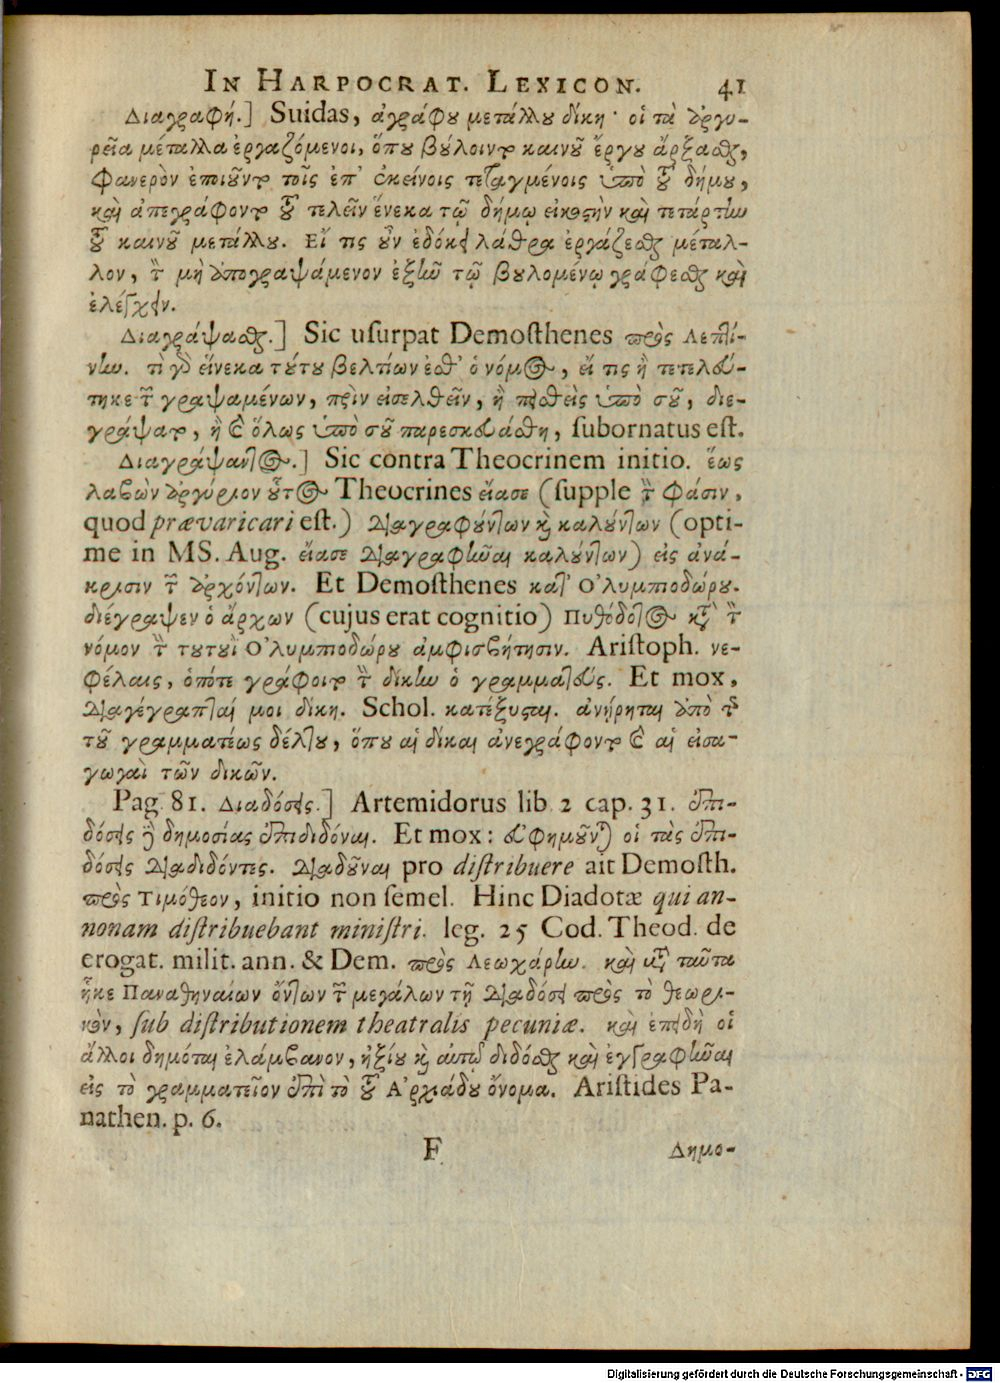 IN HARPOCRAT. LEXICON. 41
Διαγραφή.] Suidas, ἀγράφου μετάλλου δίκη· οἱ τὰ ἀργυ-
ρεῖα μέταλλα ἐργαζόμενοι, ὅπου βούλοιντο καινοῦ ἔργου ἄρξασθαι,
φανερὸν ἐποιοῦντο τοῖς ἐπ' ἐκείνοις τεταγμένοις ὑπὸ τοῦ δήμου,
καὶ ἀπεγράφοντο τοῦ τελεῖν ἕνεκα τῷ δήμῳ εἰκοστὴν καὶ τετάρτην
τοῦ καινοῦ μετάλλου. Εἴ τις οὖν ἐδόκει λάθρα ἐργάζεσθαι μέταλ-
λον, τὸν μὴ ἀπογραψάμενον ἐξῆν τῷ βουλομένῳ γράφεσθαι καὶ
ἐλέγχειν.
Διαγράψασθαι.] Sic uſurpat Demoſthenes πρὸς Λεπτί-
νην. τί γὰρ εἵνεκα τούτου βελτίων ἐσθ' ὁ νόμος, εἴ τις ἢ τετελεύ-
τηκε τῶν γραψαμένων, πρὶν εἰσελθεῖν, ἢ πεισθεὶς ὑπὸ σοῦ, διε-
γράψατο, ἢ καὶ ὅλως ὑπὸ σοῦ παρεσκευάσθη, ſubornatus eſt.
Διαγράψαντος.] Sic contra Theocrinem initio. ἕως
λαβὼν ἀργύριον οὗτος Theocrines εἴασε (ſupple τὴν φάσιν,
quod prævaricari eſt.) διαγραφόντων καὶ καλούντων (opti-
me in MS. Aug. εἴασε διαγραφῆναι καλούντων) εἰς ἀνά-
κρισιν τῶν ἀρχόντων. Et Demoſthenes κατ' Ὀλυμπιοδώρου.
διέγραψεν ὁ ἄρχων (cujus erat cognitio) Πυθόδοτος κατὰ τὸν
νόμον τὴν τουτουῒ Ὀλυμπιοδώρου ἀμφισβήτησιν. Ariſtoph. νε-
φέλαις, ὁπότε γράφοιτο τὴν δίκην ὁ γραμματεύς. Et mox,
διαγέγραπταί μοι δίκη. Schol. κατέξυσται. ἀνῄρηται ἀπὸ τῆς
τοῦ γραμματέως δέλτου, ὅπου αἱ δίκαι ἀνεγράφοντο καὶ αἱ εἰσα-
γωγαὶ τῶν δικῶν.
Pag. 81. Διαδόσεις.] Artemidorus lib 2 cap. 31. ἐπι-
δόσεις ἢ δημοσίας ἐπιδιδόναι. Et mox: εὐφημοῦνται οἱ τὰς ἐπι-
δόσεις διαδιδόντες. διαδοῦναι pro diſtribuere ait Demoſth.
πρὸς Τιμόθεον, initio non ſemel. Hinc Diadotæ qui an-
nonam diſtribuebant miniſtri. leg. 25 Cod. Theod. de
erogat. milit. ann. & Dem. πρὸς Λεωχάρην. καὶ μετὰ ταῦτα
ἧκε Παναθηναίων ὄντων τῶν μεγάλων τῇ διαδόσει πρὸς τὸ θεωρι-
κὸν, ſub diſtributionem theatralis pecuniæ. καὶ ἐπειδὴ οἱ
ἄλλοι δημόται ἐλάμβανον, ἠξίου καὶ αὐτῷ δίδοσθαι καὶ ἐγγραφῆναι
εἰς τὸ γραμματεῖον ἐπὶ τὸ τοῦ Ἀρχιάδου ὄνομα. Ariſtides Pa-
nathen. p. 6.
F Δημο-
Digitalisierung gefördert durch die Deutsche Forschungsgemeinschaft - DFG